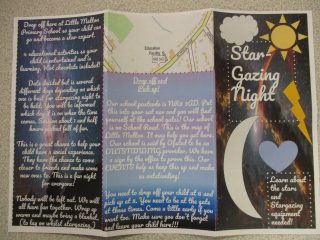 Drop off here at Little Melton
Primary School so your child can
go and become a star expert.
4 educational activities so your
child is entertained and is
learning. Hot chocolate included!
Date: decided but is several
different days depending on which
one is best for stargazing night to
be held. You will be informed
which day it is on when the time
comes. It's on about 1 and half
hours packed full of fun.
This is a great chance to help your
child have a social experience.
They have the chance to come
closer to friends and make some
new ones to. This is a fun night
for everyone!
Nobody will be left out. We will
all have fun together. Wrap up
warm and maybe bring a blanket.
(to lay on whilst stargazing.)
Education
Facility
Drop off and
Pick up!
Our school postcode is NR9 Put
this into your sat nav and you will find
yourself at the school gates! Our school
is on School Road. This is the map of
Little Melton. It may help you to get
here. Our school is said by Ofsted to be an
OUTSTANDING provider. We have
a sign by the office to prove this. Our
EVENTS help us keep this up and make
us outstanding!
You need to drop your child at 6 and
pick up at 8. You need to be at the gate
at these times. Come a little early if you
want too. Make sure you don't forget
and leave your child here!!!
Star
Gazing
Night
Learn about
the stars
and
Stargazing
equipment
needed!